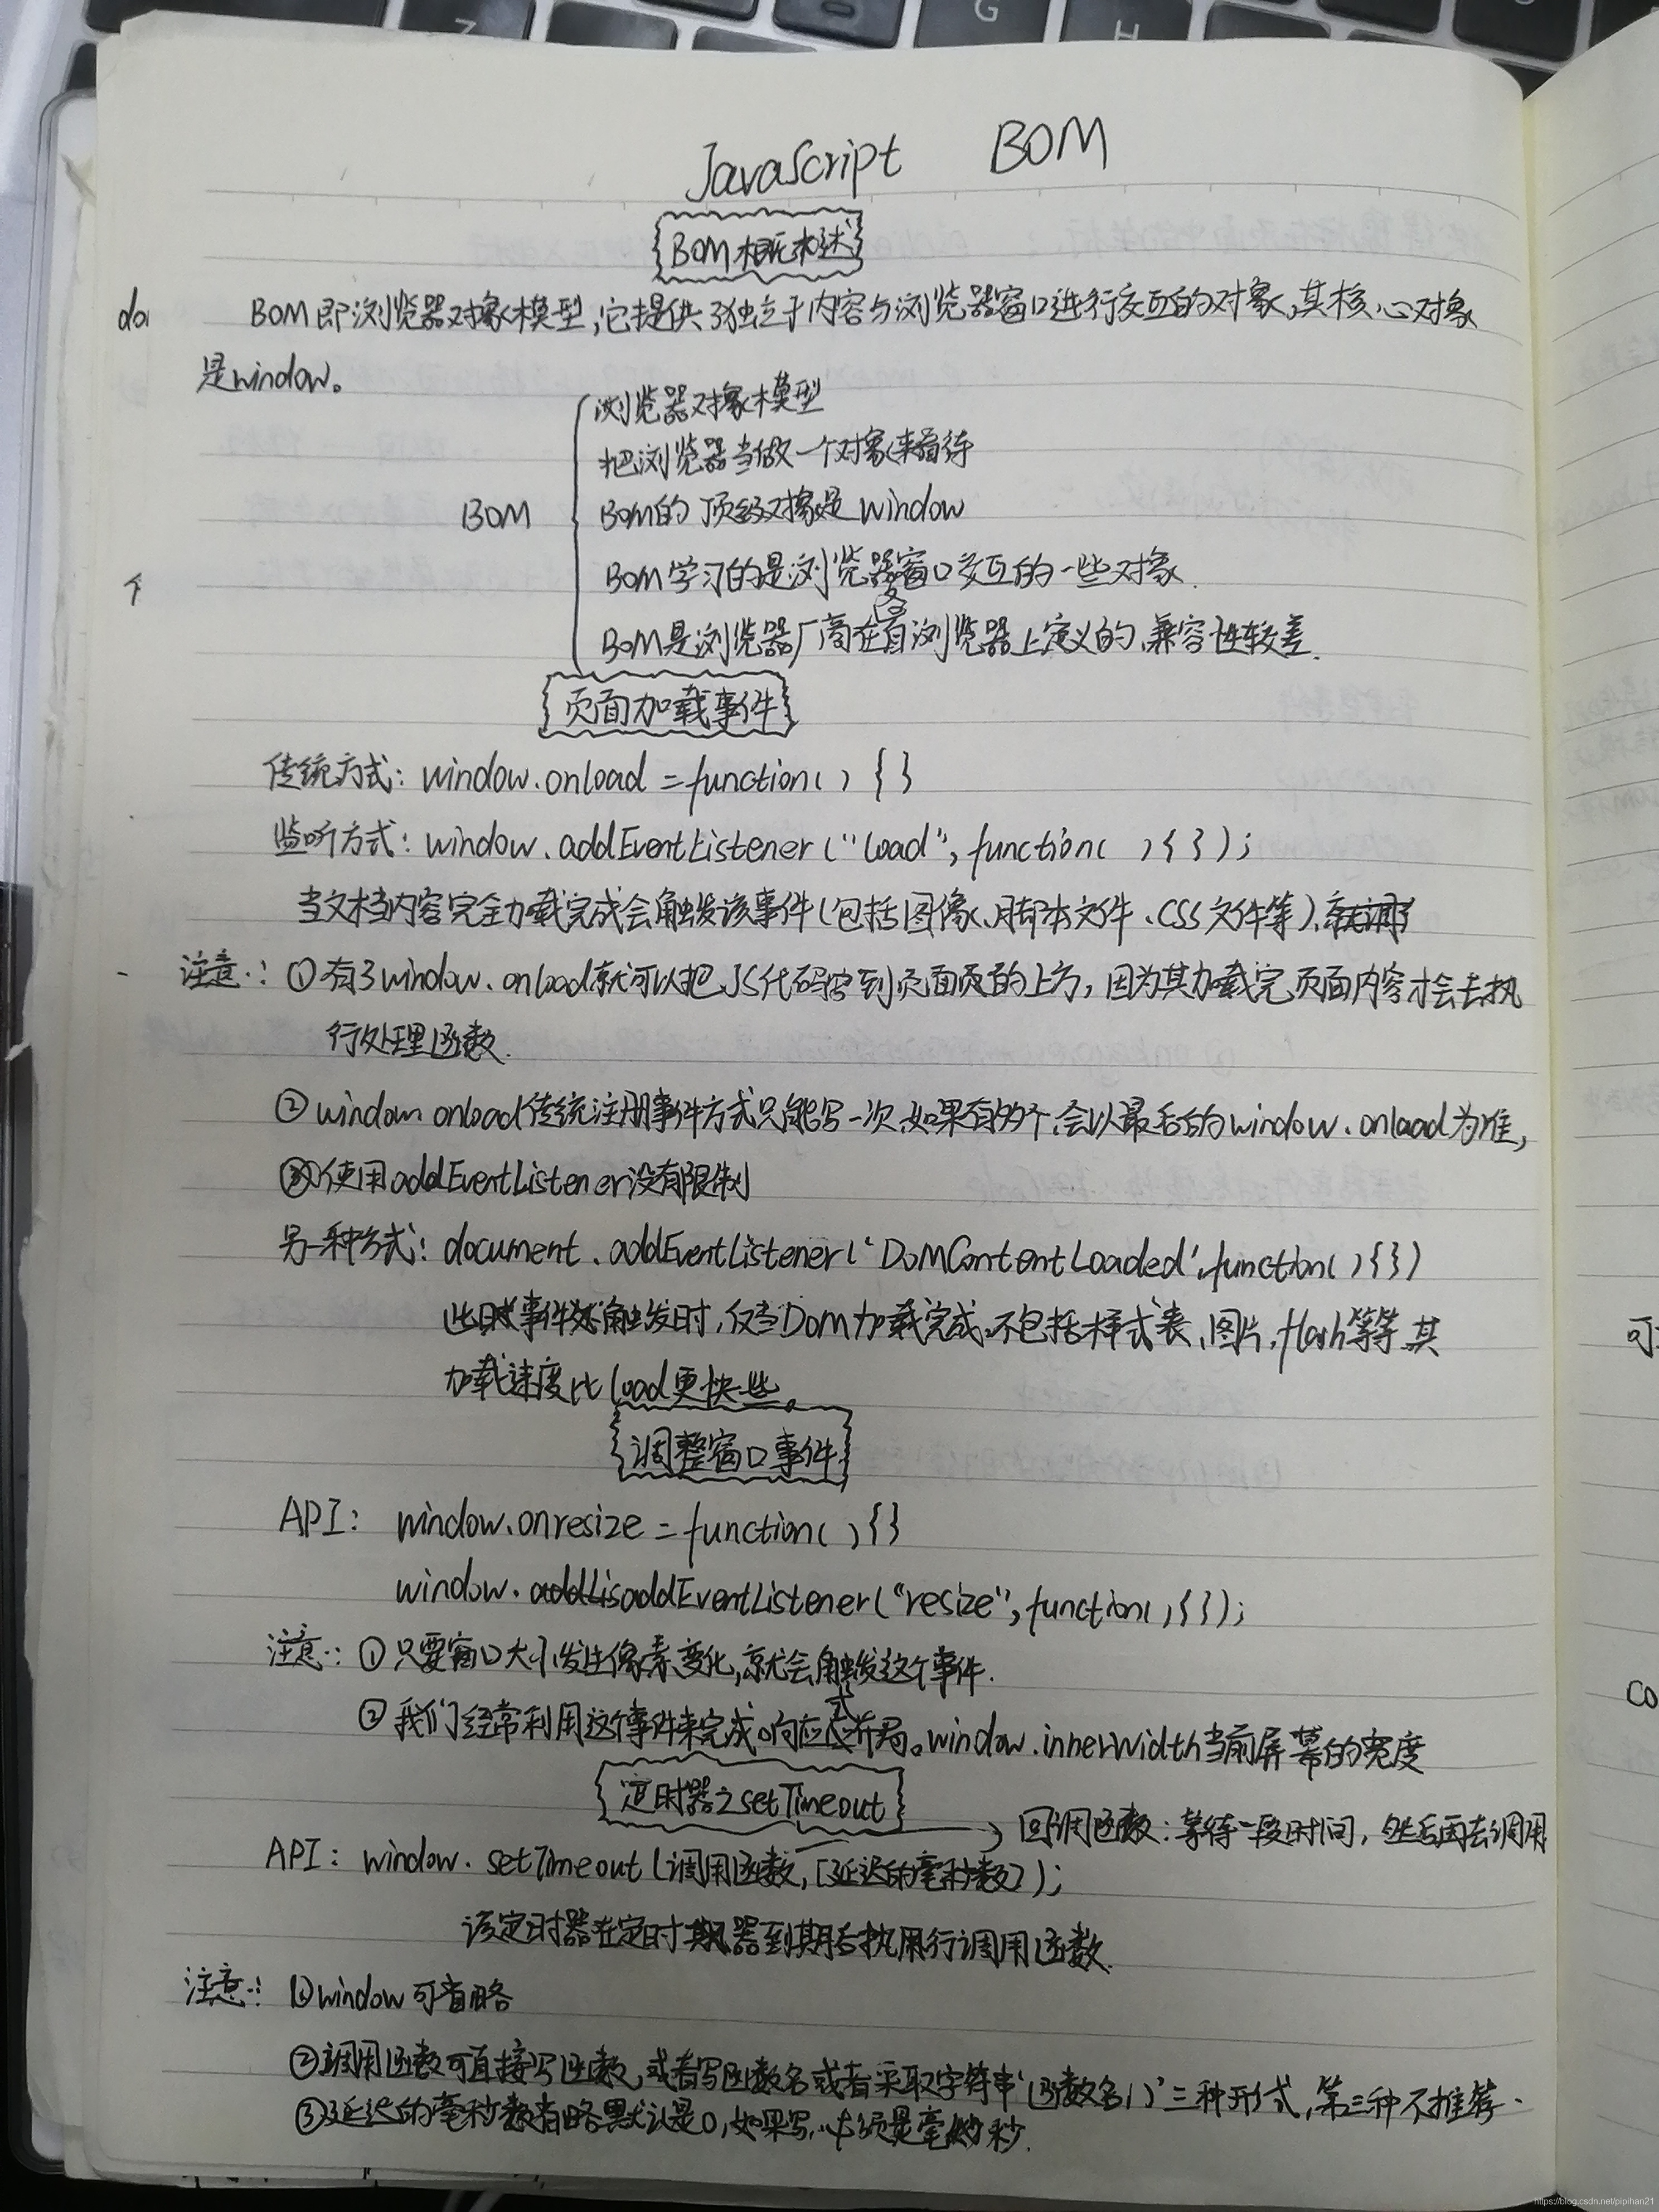 JavaScript BOM
BOM概述
BOM即浏览器对象模型,它提供了独立于内容与浏览器窗口进行交互的对象,其核心对象
是window。
浏览器对象模型
把浏览器当做一个对象来看待
BOM
BOM的顶级对象是window
BOM学习的是浏览器窗口交互的一些对象.
BOM是浏览器厂商在各自浏览器上定义的,兼容性较差.
页面加载事件
传统方式: window.onload = function() {}
监听方式: window.addEventListener("load", function( ){ });
当文档内容完全加载完成会触发该事件(包括图像、脚本文件、CSS文件等),
注意: ①有了window.onload就可以把JS代码写到页面的上方,因为其加载完页面内容才会去执
行处理函数.
② window onload传统注册事件方式只能写一次,如果有多个,会以最后的window.onload为准,
③使用addEventListener没有限制
另一种方式: document.addEventListener('DOMContentLoaded',function(){})
此事件触发时,仅当DOM加载完成,不包括样式表,图片,flash等等其
加载速度比load更快些。
调整窗口事件
API: window.onresize = function(){}
window.addEventListener("resize", function(){});
注意: ①只要窗口大小发生像素变化,就会触发这个事件.
②我们经常利用这个事件来完成响应式布局。window.innerWidth当前屏幕的宽度
定时器之setTimeout
回调函数:等待一段时间,然后再去调用
API: window.setTimeout(调用函数,[延迟的毫秒数]);
该定时器在定时器到期后执行调用函数.
注意: ①window可省略
②调用函数可直接写函数,或者写函数名或者采取字符串'函数名()'三种形式,第三种不推荐.
③延迟的毫秒数省略默认是0,如果写,必须是毫秒.
https://blog.csdn.net/pipihan21